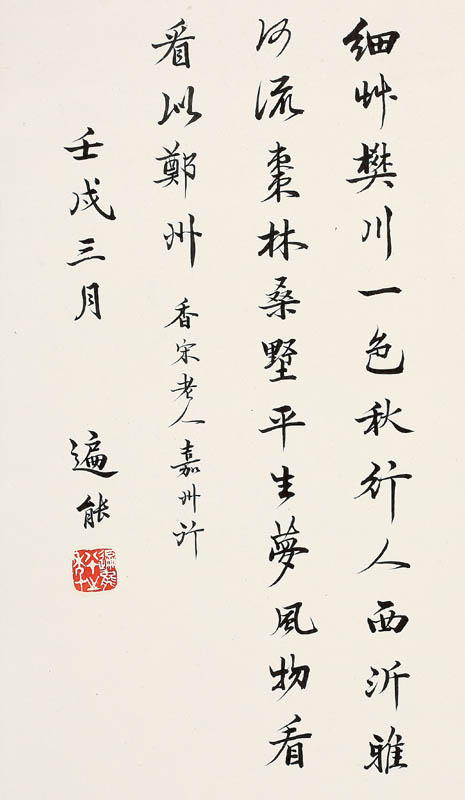 細艸樊川一色秋行人西泝雅
河流棗林桑墅平生夢風物看
看似鄭州 香宋老人嘉州行
壬戌三月 遍能